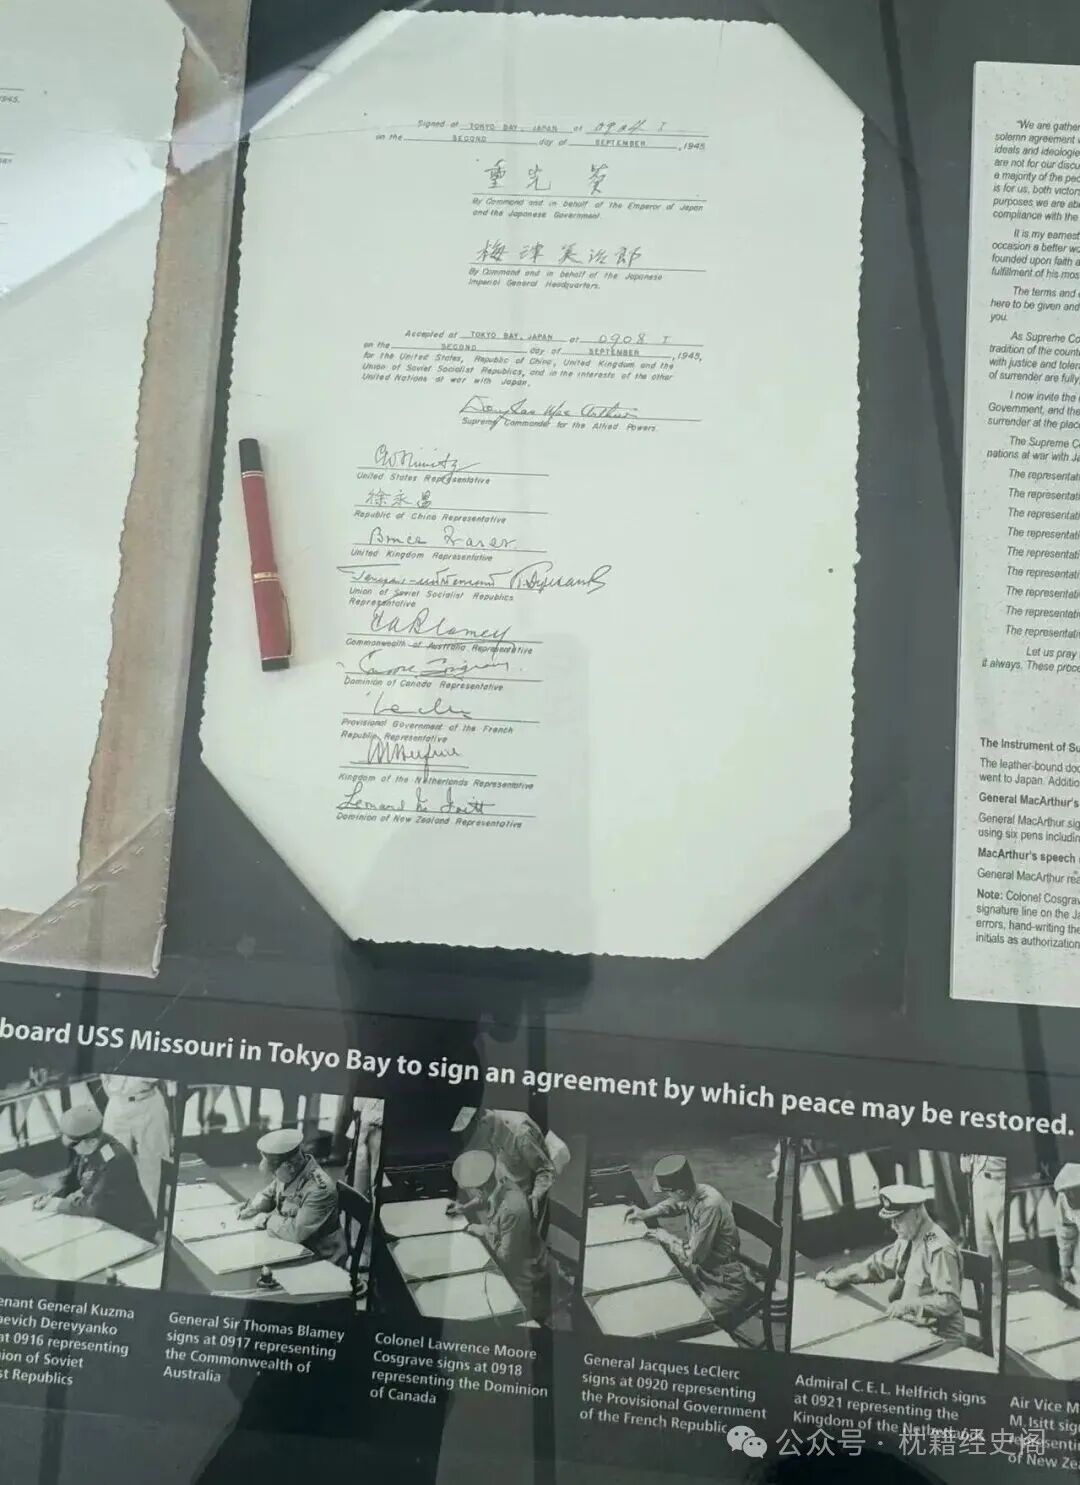 1945.
Signed at TOKYO BAY, JAPAN at 0904 I
on the SECOND day of SEPTEMBER , 1945
重光 葵
By Command and in behalf of the Emperor of Japan
and the Japanese Government.
梅津美治郎
By Command and in behalf of the Japanese
Imperial General Headquarters.
Accepted at TOKYO BAY, JAPAN at 0908 I
on the SECOND day of SEPTEMBER , 1945,
for the United States, Republic of China, United Kingdom and the
Union of Soviet Socialist Republics, and in the interests of the other
United Nations at war with Japan.
Douglas MacArthur
Supreme Commander for the Allied Powers.
C.W. Nimitz
United States Representative
徐永昌
Republic of China Representative
Bruce Fraser
United Kingdom Representative
Union of Soviet Socialist Republics
Representative
T A Blamey
Commonwealth of Australia Representative
Dominion of Canada Representative
Provisional Government of the French
Republic Representative
Kingdom of the Netherlands Representative
Leonard M. Isitt
Dominion of New Zealand Representative
"We are gathe
solemn agreement
ideals and ideologie
are not for our discu
a majority of the pec
is for us, both victor
purposes we are ab
compliance with the
It is my earnest
occasion a better wo
founded upon faith a
fulfillment of his mos
The terms and
here to be given and
you.
As Supreme Co
tradition of the count
with justice and toler
of surrender are fully
I now invite the
Government, and the
surrender at the plac
The Supreme C
nations at war with Ja
The representati
The representat
The representat
The representat
The representat
The representat
The representat
The representat
The representat
Let us pray
it always. These proc
The Instrument of Su
The leather-bound doc
went to Japan. Additio
General MacArthur's
General MacArthur sig
using six pens includin
MacArthur's speech
General MacArthur rea
Note: Colonel Cosgrav
signature line on the Ja
errors, hand-writing the
initials as authorization
board USS Missouri in Tokyo Bay to sign an agreement by which peace may be restored.
enant General Kuzma
aevich Derevyanko
at 0916 representing
ion of Soviet
st Republics
General Sir Thomas Blamey
signs at 0917 representing
the Commonwealth of
Australia
Colonel Lawrence Moore
Cosgrave signs at 0918
representing the Dominion
of Canada
General Jacques LeClerc
signs at 0920 representing
the Provisional Government
of the French Republic
Admiral C.E.L. Helfrich signs
at 0921 representing the
Kingdom of the Netherlands
Air Vice M
M. Isitt sig
representin
of New Zea
公众号·枕籍经史阁